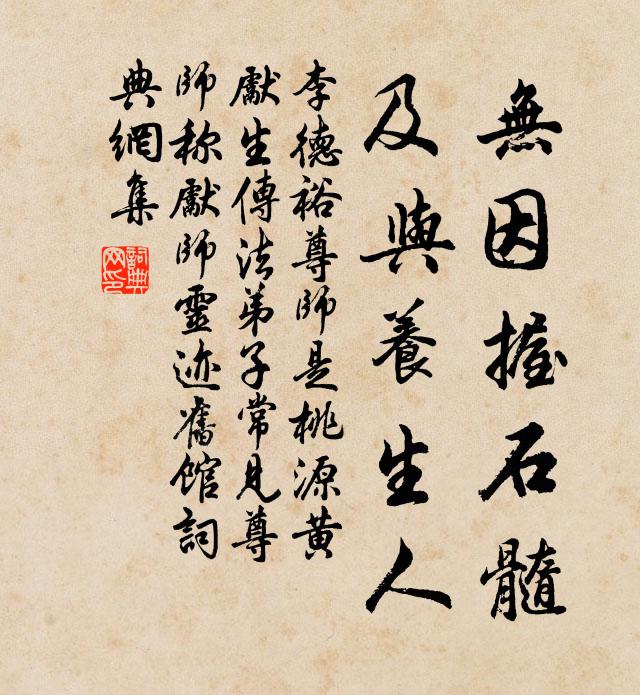 無因握石髓
及與養生人
李德裕尊師是桃源黃
獻生傳法弟子常見尊
師称獻師靈迹舊館詞
典網集
詞典
网印